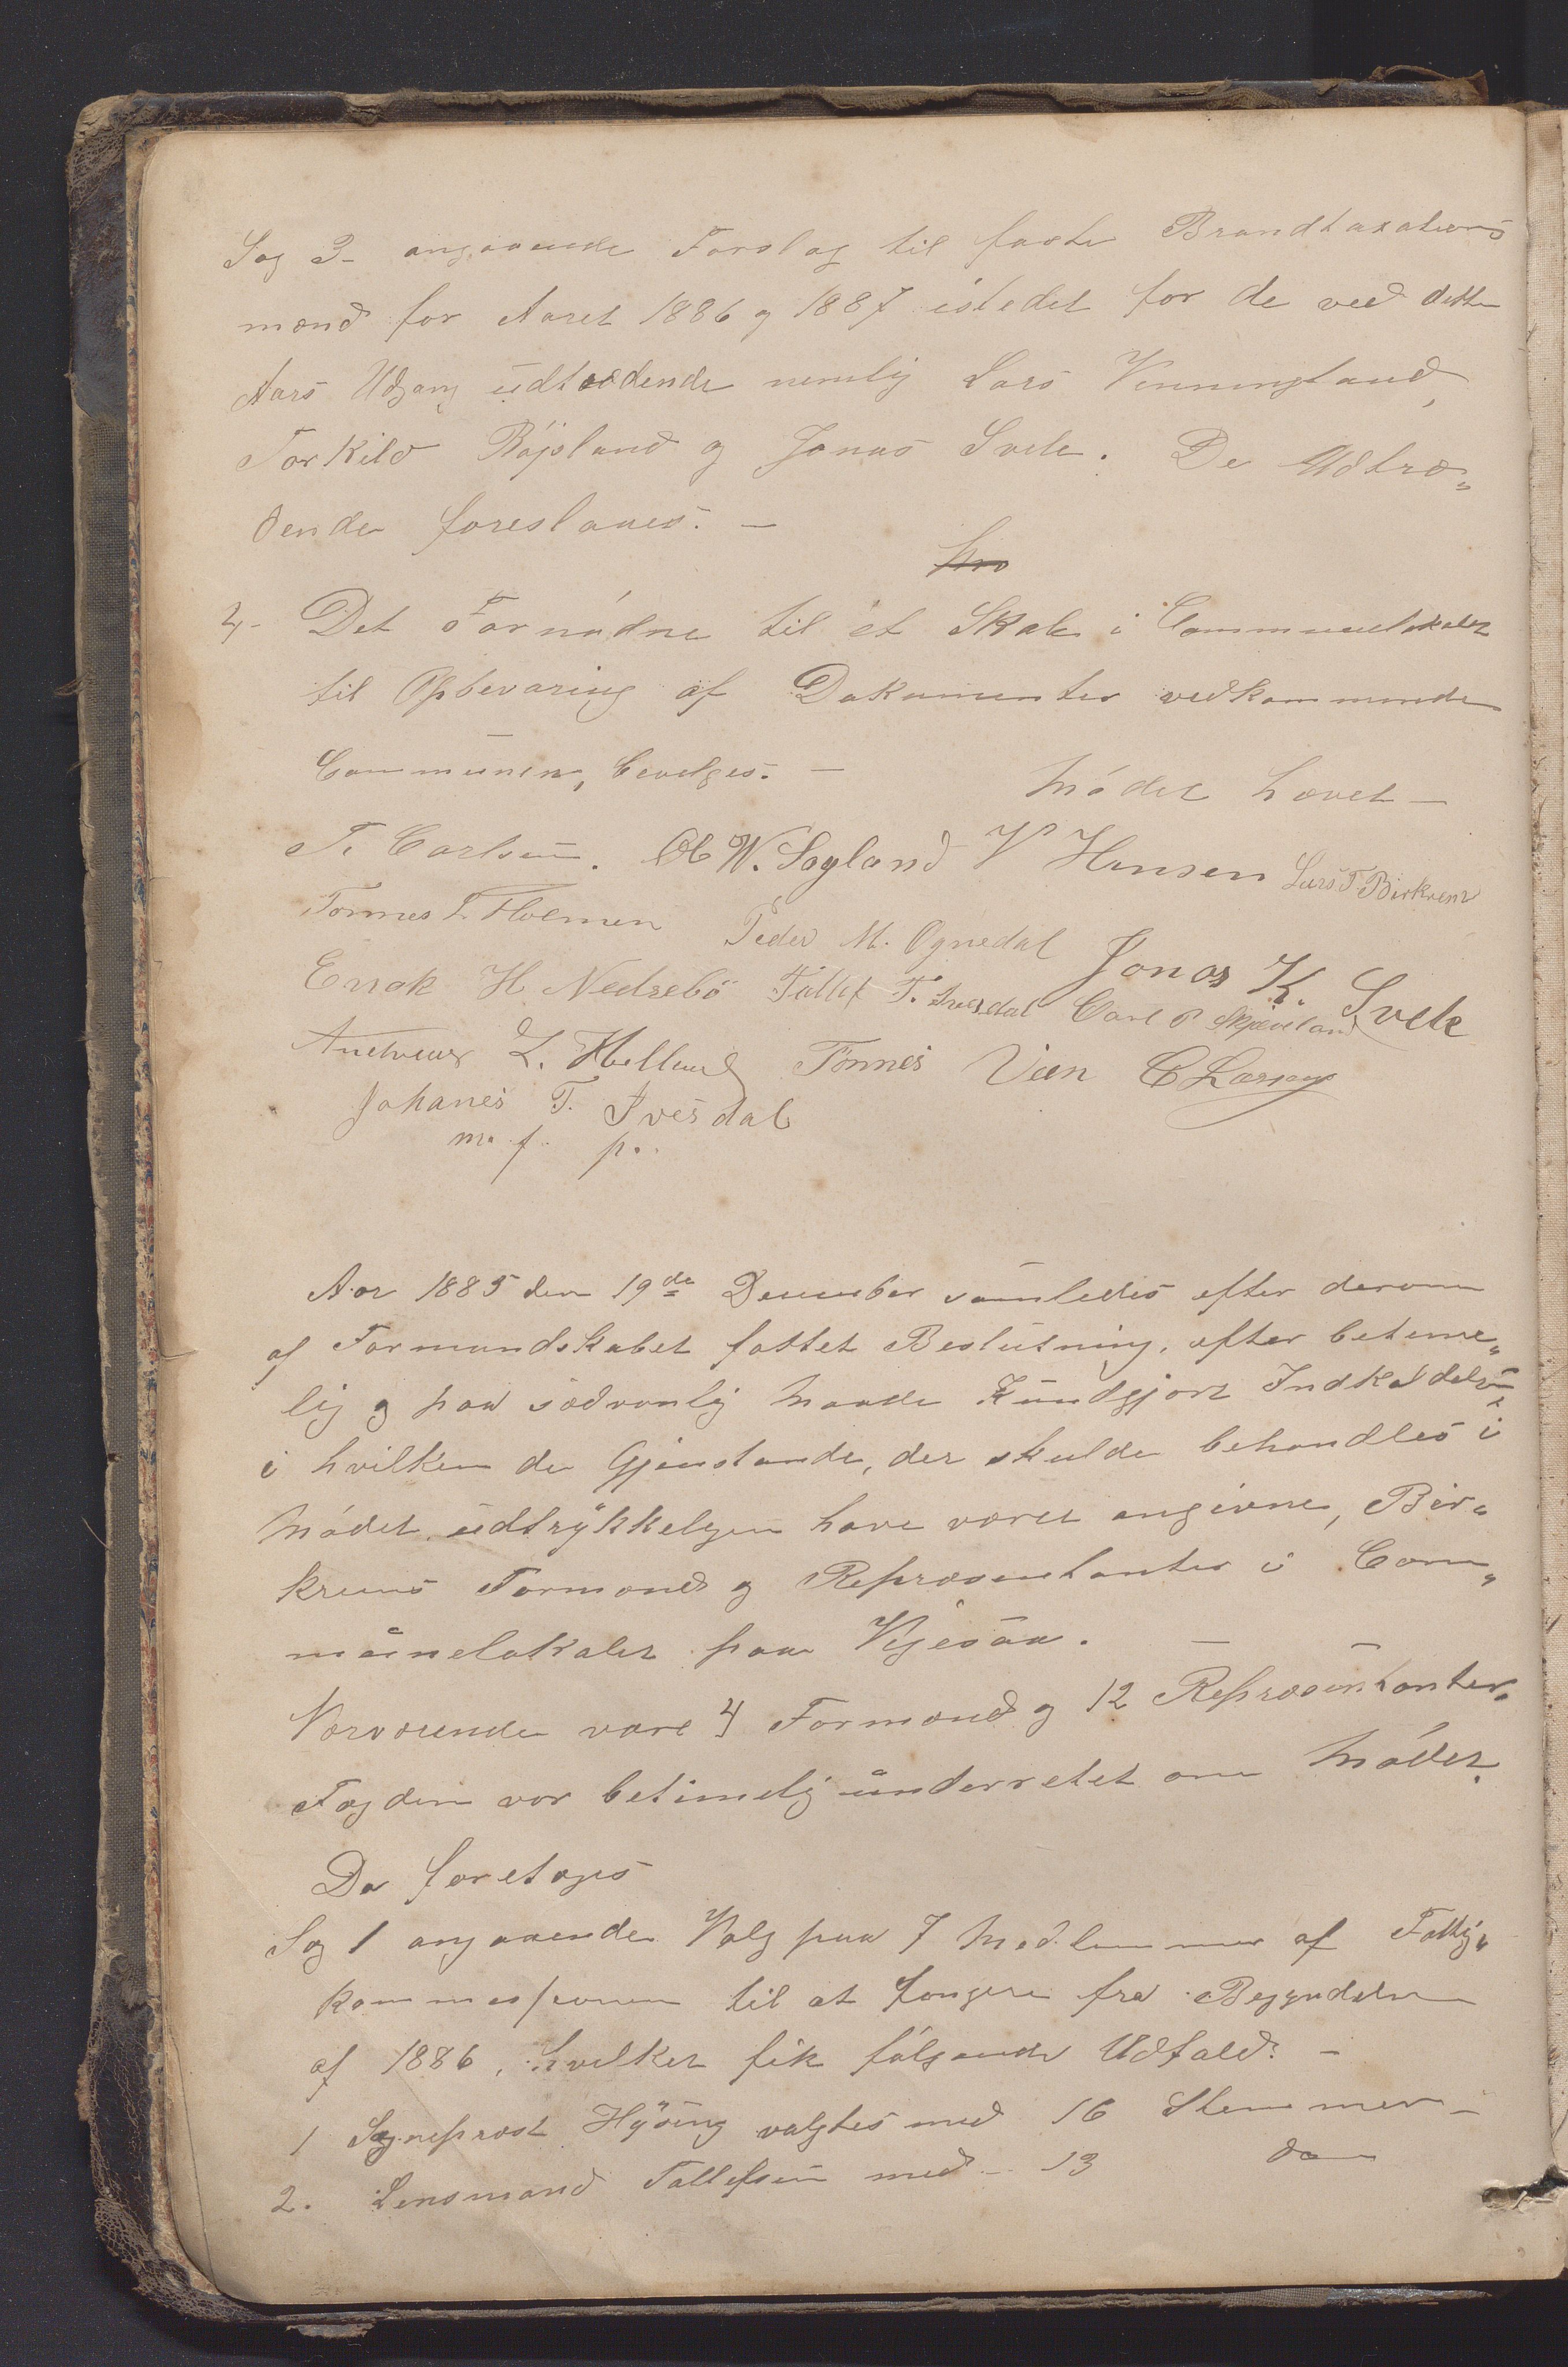 Sag 3- angaaende Forslag til faste Brandtaxations
mænd for Aaret 1886 og 1887 istedet for de ved dette
Aars Udgang udtrædende nemlig Lars Vinningland,
Torkild Röjsland og Jonas Svele. De Udtræ„
dende foreslaaes. -
4- Det Fornödne til et Skab i Communelokalet
til Opbevaring af Dokumenter vedkommende
Communen, bevilges. - Mödet hævet -
T. Carlsen. Ol W. Sagland V Hansen Lars T Birkrem
Tönnes T. Holmen Peder M. Ognedal Jonas K. Svele
Enok H Nedrebö Tollef T. Ivesdal Carl P Skjæveland
Andreas L. Helland Tönnes Veen C Larsen
Johanes T. Ivesdal
m. f. p.
Aar 1885 den 19de December samledes efter derom
af Formandskabet fattet Beslutning, efter betime„
lig og paa sædvanlig Maade kundgjort Indkaldelse
i hvilken de Gjenstande, der skulde behandles i
Mödet udtrykkelgen have været angivne, Bir„
krems Formænd og Repræsentanter i Com„
munelokalet paa Vigesaa. -
Nærværende vare 4 Formænd og 12 Repræsentanter.
Fogden var betimelig underretet om Mödet.
Da foretoges
Sag 1 angaaende Valg paa 7 Medlemmer af Fattig„
kommesionen til at fungere fra Begyndelsen
af 1886, hvilket fik fölgende Udfald: -
1 Sogneprest Hysing valgtes med 16 Stemmer -
2. Lensmand Tollefsen med - 13 do